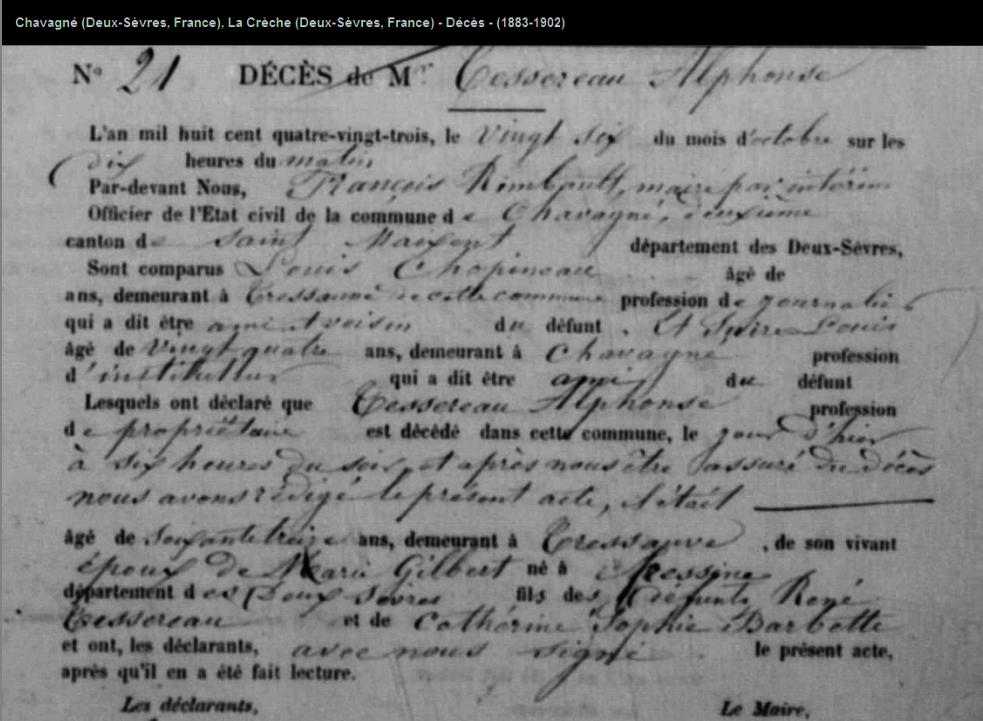 Chavagné (Deux-Sèvres, France), La Crèche (Deux-Sèvres, France) - Décès - (1883-1902)
N° 21 DÉCÈS de Mr Tessereau Alphonse
L'an mil huit cent quatre-vingt-trois, le vingt six du mois d'octobre sur les
dix heures du matin
Par-devant Nous, François Rimbault, maire par intérim
Officier de l'État civil de la commune de Chavagné, deuxième
canton de Saint Maixent département des Deux-Sèvres,
Sont comparus Louis Chopineau âgé de
ans, demeurant à de cette commune profession de journalier
qui a dit être ami et voisin du défunt. Et Louis
âgé de vingt quatre ans, demeurant à Chavagné profession
d'instituteur qui a dit être ami du défunt
Lesquels ont déclaré que Tessereau Alphonse profession
de propriétaire est décédé dans cette commune, le jour d'hier
à six heures du soir, et après nous être assuré du décès
nous avons rédigé le présent acte, il était
âgé de soixante treize ans, demeurant à Tressauve, de son vivant
époux de Marie Gilbert né à
département des Deux Sèvres fils de défunts René
Tessereau et de Cathérine Sophie Barbotte
et ont, les déclarants, avec nous signé le présent acte,
après qu'il en a été fait lecture.
Les déclarants, Le Maire,